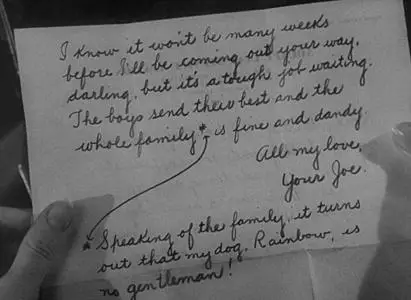 I know it won't be many weeks
before I'll be coming out your way,
darling, but it's a tough job waiting.
The boys send their best and the
whole family * is fine and dandy.
All my love,
Your Joe.
* Speaking of the family, it turns
out that my dog, Rainbow, is
no gentleman!